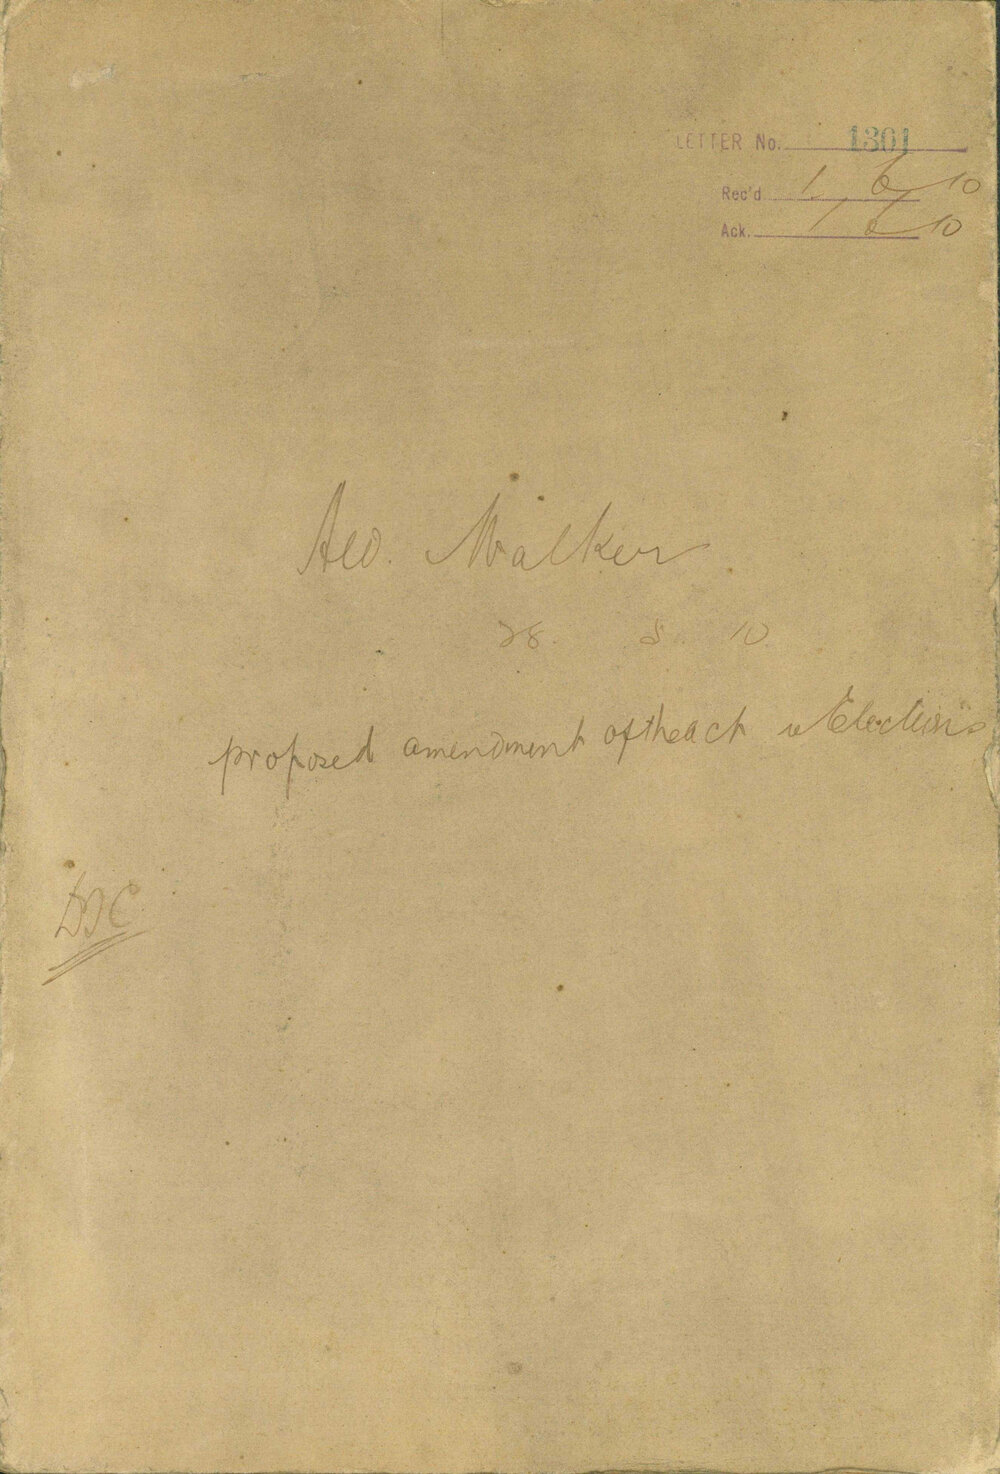 LETTER No. 1301
Rec'd 1 6 10
Ack. 1 6 10
Ald. Walker
28. 5. 10
proposed amendment of the act re Elections